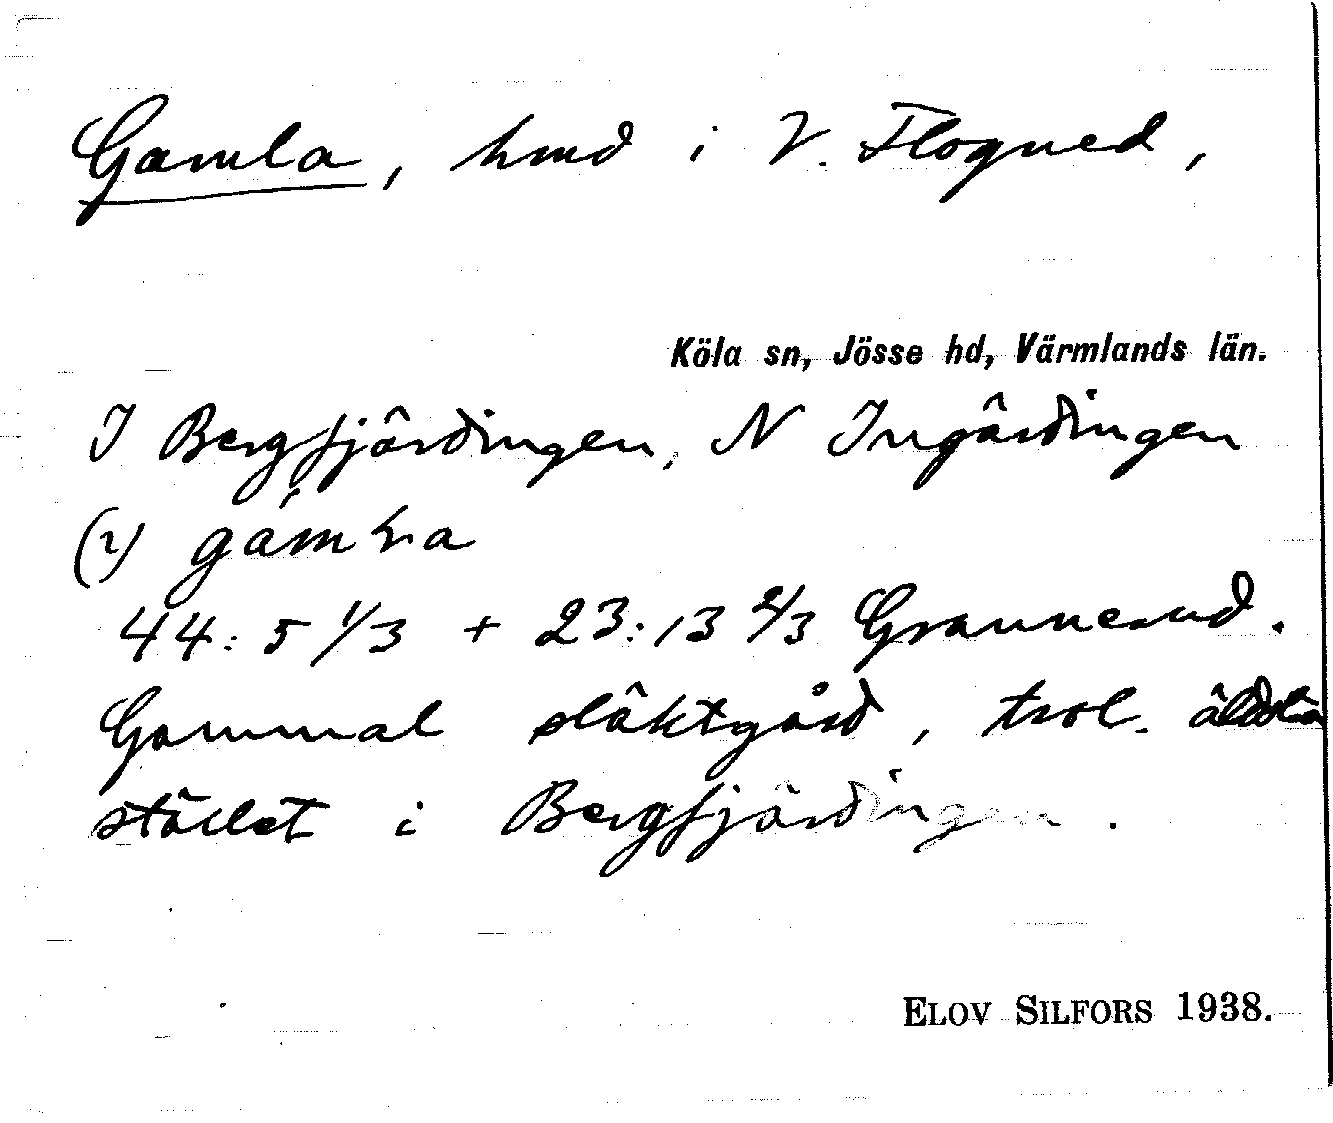 Gamla, hmd i V. Flogned,
Köla sn, Jösse hd, Värmlands län.
I Bergfjärdingen, N Ingärdingen
(2) gámla
44: 5 1/3 + 23: 13 2/3 Grannerud.
Gammal släktgård, trol. äldsta
stället i Bergfjärdingen.
ELOV SILFORS 1938.